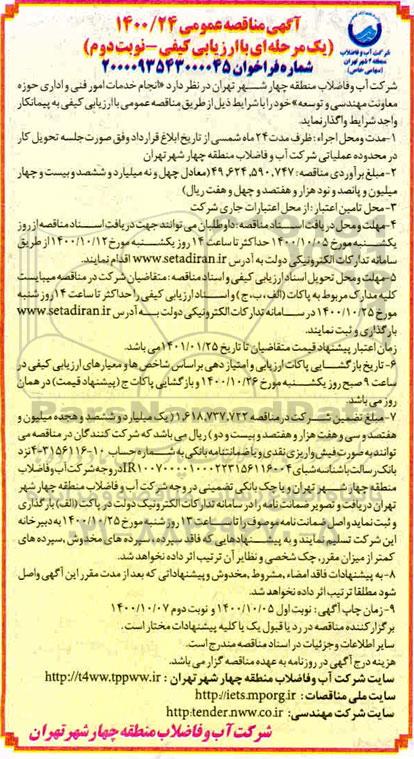 آگهی مناقصه عمومی ۱۴۰۰/۲۴
(یک مرحله ای با ارزیابی کیفی - نوبت دوم)
شماره فراخوان ۲۰۰۰۰۹۳۵۴۳۰۰۰۰۴۵
شرکت آب و فاضلاب
منطقه ۴ شهر تهران
(سهامی خاص)
شرکت آب و فاضلاب منطقه چهار شهر تهران در نظر دارد «انجام خدمات امور فنی و اداری حوزه
معاونت مهندسی و توسعه» خود را با شرایط ذیل از طریق مناقصه عمومی با ارزیابی کیفی به پیمانکار
واجد شرایط واگذار نماید.
۱-مدت و محل اجراء: ظرف مدت ۲۴ ماه شمسی از تاریخ ابلاغ قرارداد وفق صورت جلسه تحویل کار
در محدوده عملیاتی شرکت آب و فاضلاب منطقه چهار شهر تهران
۲-مبلغ برآوردی مناقصه: ۴۹,۶۲۴,۵۹۰,۷۴۷ (معادل چهل و نه میلیارد و ششصد و بیست و چهار
میلیون و پانصد و نود هزار و هفتصد و چهل و هفت ریال)
۳-محل تامین اعتبار: از محل اعتبارات جاری شرکت
۴-مهلت و محل دریافت اسناد مناقصه: داوطلبان می توانند جهت دریافت اسناد مناقصه از روز
یکشنبه مورخ ۱۴۰۰/۱۰/۰۵ حداکثر تا ساعت ۱۴ روز یکشنبه مورخ ۱۴۰۰/۱۰/۱۲ از طریق
سامانه تدارکات الکترونیکی دولت به آدرس www.setadiran.ir اقدام نمایند.
۵-مهلت و محل تحویل اسناد ارزیابی کیفی و اسناد مناقصه: متقاضیان شرکت در مناقصه میبایست
کلیه مدارک مربوط به پاکات (الف، ب، ج) و اسناد ارزیابی کیفی را حداکثر تا ساعت ۱۴ روز شنبه
مورخ ۱۴۰۰/۱۰/۲۵ در سامانه تدارکات الکترونیکی دولت به آدرس www.setadiran.ir
بارگذاری و ثبت نمایند.
زمان اعتبار پیشنهاد قیمت متقاضیان تا تاریخ ۱۴۰۱/۰۱/۲۵ می باشد.
۶-تاریخ بازگشایی پاکات ارزیابی و امتیاز دهی بر اساس شاخص ها و معیارهای ارزیابی کیفی در
ساعت ۹ صبح روز یکشنبه مورخ ۱۴۰۰/۱۰/۲۶ و بازگشایی پاکات ج (پیشنهاد قیمت) در همان
روز می باشد.
۷-مبلغ تضمین شرکت در مناقصه ۱,۶۱۸,۷۳۷,۷۳۲ (یک میلیارد و ششصد و هجده میلیون و
هفتصد و سی و هفت هزار و هفتصد و بیست و دو) ریال می باشد که شرکت کنندگان در مناقصه می
توانند به صورت فیش واریزی نقدی و یا ضمانتنامه بانکی به شماره حساب
بانک رسالت با شناسه شبای در وجه شرکت آب و فاضلاب
منطقه چهار شهر تهران و یا چک بانکی تضمینی در وجه شرکت آب و فاضلاب منطقه چهار شهر
تهران دریافت و تصویر ضمانت نامه را در سامانه تدارکات الکترونیک دولت در پاکت (الف) بارگذاری
و ثبت نماید و اصل ضمانت نامه موصوف را تا ساعت ۱۴ روز شنبه مورخ ۱۴۰۰/۱۰/۲۵ به دبیرخانه
این شرکت تسلیم نمایند و به پیشنهادهایی که فاقد سپرده، سپرده های مخدوش، سپرده های
کمتر از میزان مقرر، چک شخصی و نظایر آن ترتیب اثر داده نخواهد شد.
۸-به پیشنهادات فاقد امضاء، مشروط، مخدوش و پیشنهاداتی که بعد از مدت مقرر این آگهی واصل
شود مطلقا ترتیب اثر داده نخواهد شد.
۹-زمان چاپ آگهی: نوبت اول ۱۴۰۰/۱۰/۰۵ و نوبت دوم ۱۴۰۰/۱۰/۰۷
برگزار کننده مناقصه در رد یا قبول یک یا کلیه پیشنهادات مختار است.
سایر اطلاعات و جزئیات در اسناد مناقصه مندرج است.
هزینه درج آگهی در روزنامه به عهده مناقصه گزار می باشد.
سایت شرکت آب و فاضلاب منطقه چهار شهر تهران : http://t4ww.tppww.ir
سایت ملی مناقصات : http://iets.mporg.ir
سایت شرکت مهندسی: http:tender.nww.co.ir
شرکت آب و فاضلاب منطقه چهار شهر تهران